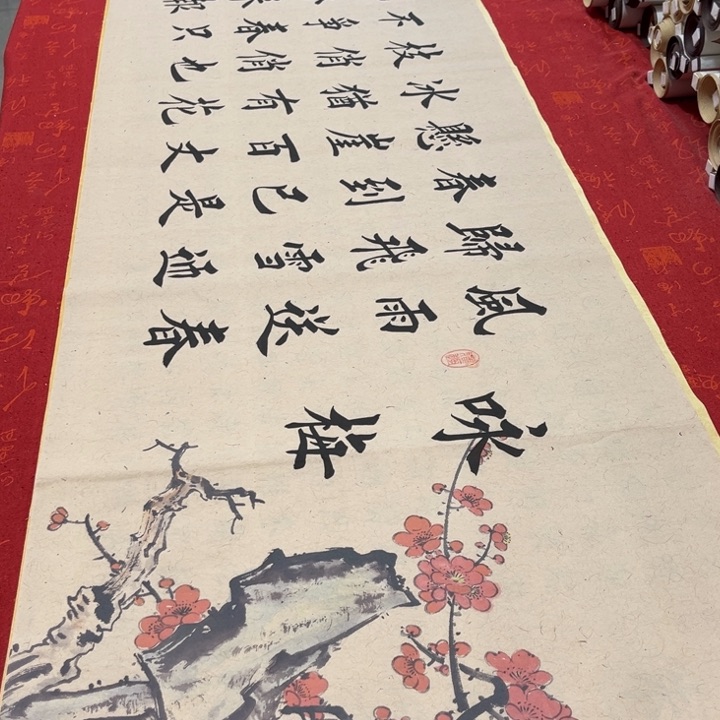 咏梅
風雨送春
歸飛雪迎
春到已是
懸崖百丈
冰猶有花
枝俏俏也
不爭春只
來報